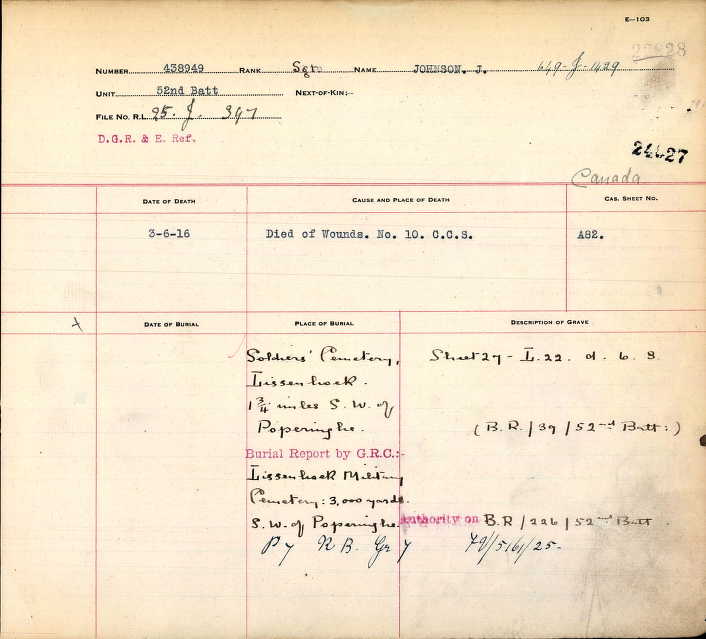 E-103
NUMBER 438949 RANK Sgt NAME JOHNSON. J. 649-J-1429
UNIT 52nd Batt NEXT-OF-KIN:-
FILE NO. R.L. 25. J. 397
D.G.R. & E. Ref.
24427
Canada
DATE OF DEATH CAUSE AND PLACE OF DEATH CAS. SHEET NO.
3-6-16 Died of Wounds. No. 10. C.C.S. A82.
DATE OF BURIAL PLACE OF BURIAL DESCRIPTION OF GRAVE
Soldiers' Cemetery, Sheet 27 - L. 22. d. 6. 8.
Lissenhoek.
1 3/4 miles S. W. of
Poperinghe. (B. R. / 39 / 52nd Batt:)
Burial Report by G.R.C.:-
Lissenhoek Military
Cemetery: 3,000 yards.
S. W. of Poperinghe. Authority on B.R / 226 / 52nd Batt.